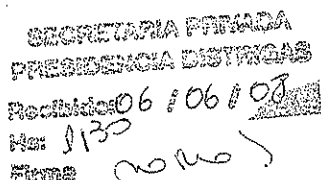 SECRETARIA PRIVADA
PRESIDENCIA DISTRIGAS
Recibido: 06 / 06 / 08
Ha: 1130
Firma